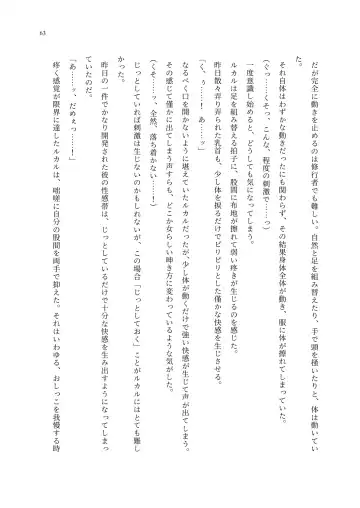 63
だが完全に動きを止めるのは修行者でも難しい。自然と足を組み替えたり、手で頭を掻いたりと、体は動いてい
た。
それ自体はわずかな動きだったにも関わらず、その結果身体全体が動き、服に体が擦れてしまっていた。
（ぐっ……くそっ、こんな、程度の刺激で……っ）
一度意識し始めると、どうしても気になってしまう。
ルカルは足を組み替える拍子に、股間に布地が擦れて弱い疼きが生じるのを感じた。
昨日散々弄り弄られた乳首も、少し体を捩るだけでビリビリとした僅かな快感を生じさせる。
「く、ぅ……！　あ……ッ」
なるべく口を開かないように堪えていたルカルだったが、少し体が動くだけで強い快感が生じて声が出てしまう。
その感じて僅かに出てしまう声すらも、どこか女らしい呻き方に変わっているような気がした。
（くそ……ッ、全然、落ち着かない……！）
じっとしていれば刺激は生じないのかもしれないが、この場合「じっとしておく」ことがルカルにはとても難し
かった。
昨日の一件でかなり開発された彼の性感帯は、じっとしているだけで十分な快感を生み出すようになってしまっ
ていたのだ。
「あ……ッ、だめだっ……！」
疼く感覚が限界に達したルカルは、咄嗟に自分の股間を両手で抑えた。それはいわゆる、おしっこを我慢する時